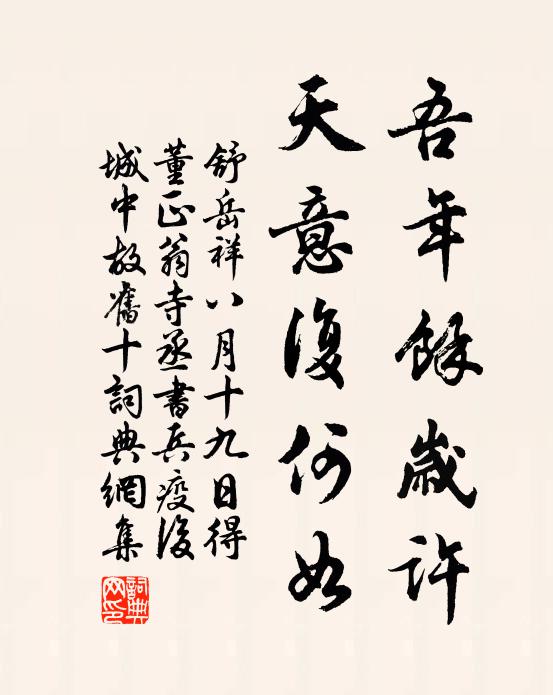 吾年餘歲許
天意復何如
舒岳祥八月十九日得
董正翁寺丞書兵疫後
城中故舊十詞典網集
詞典
网印